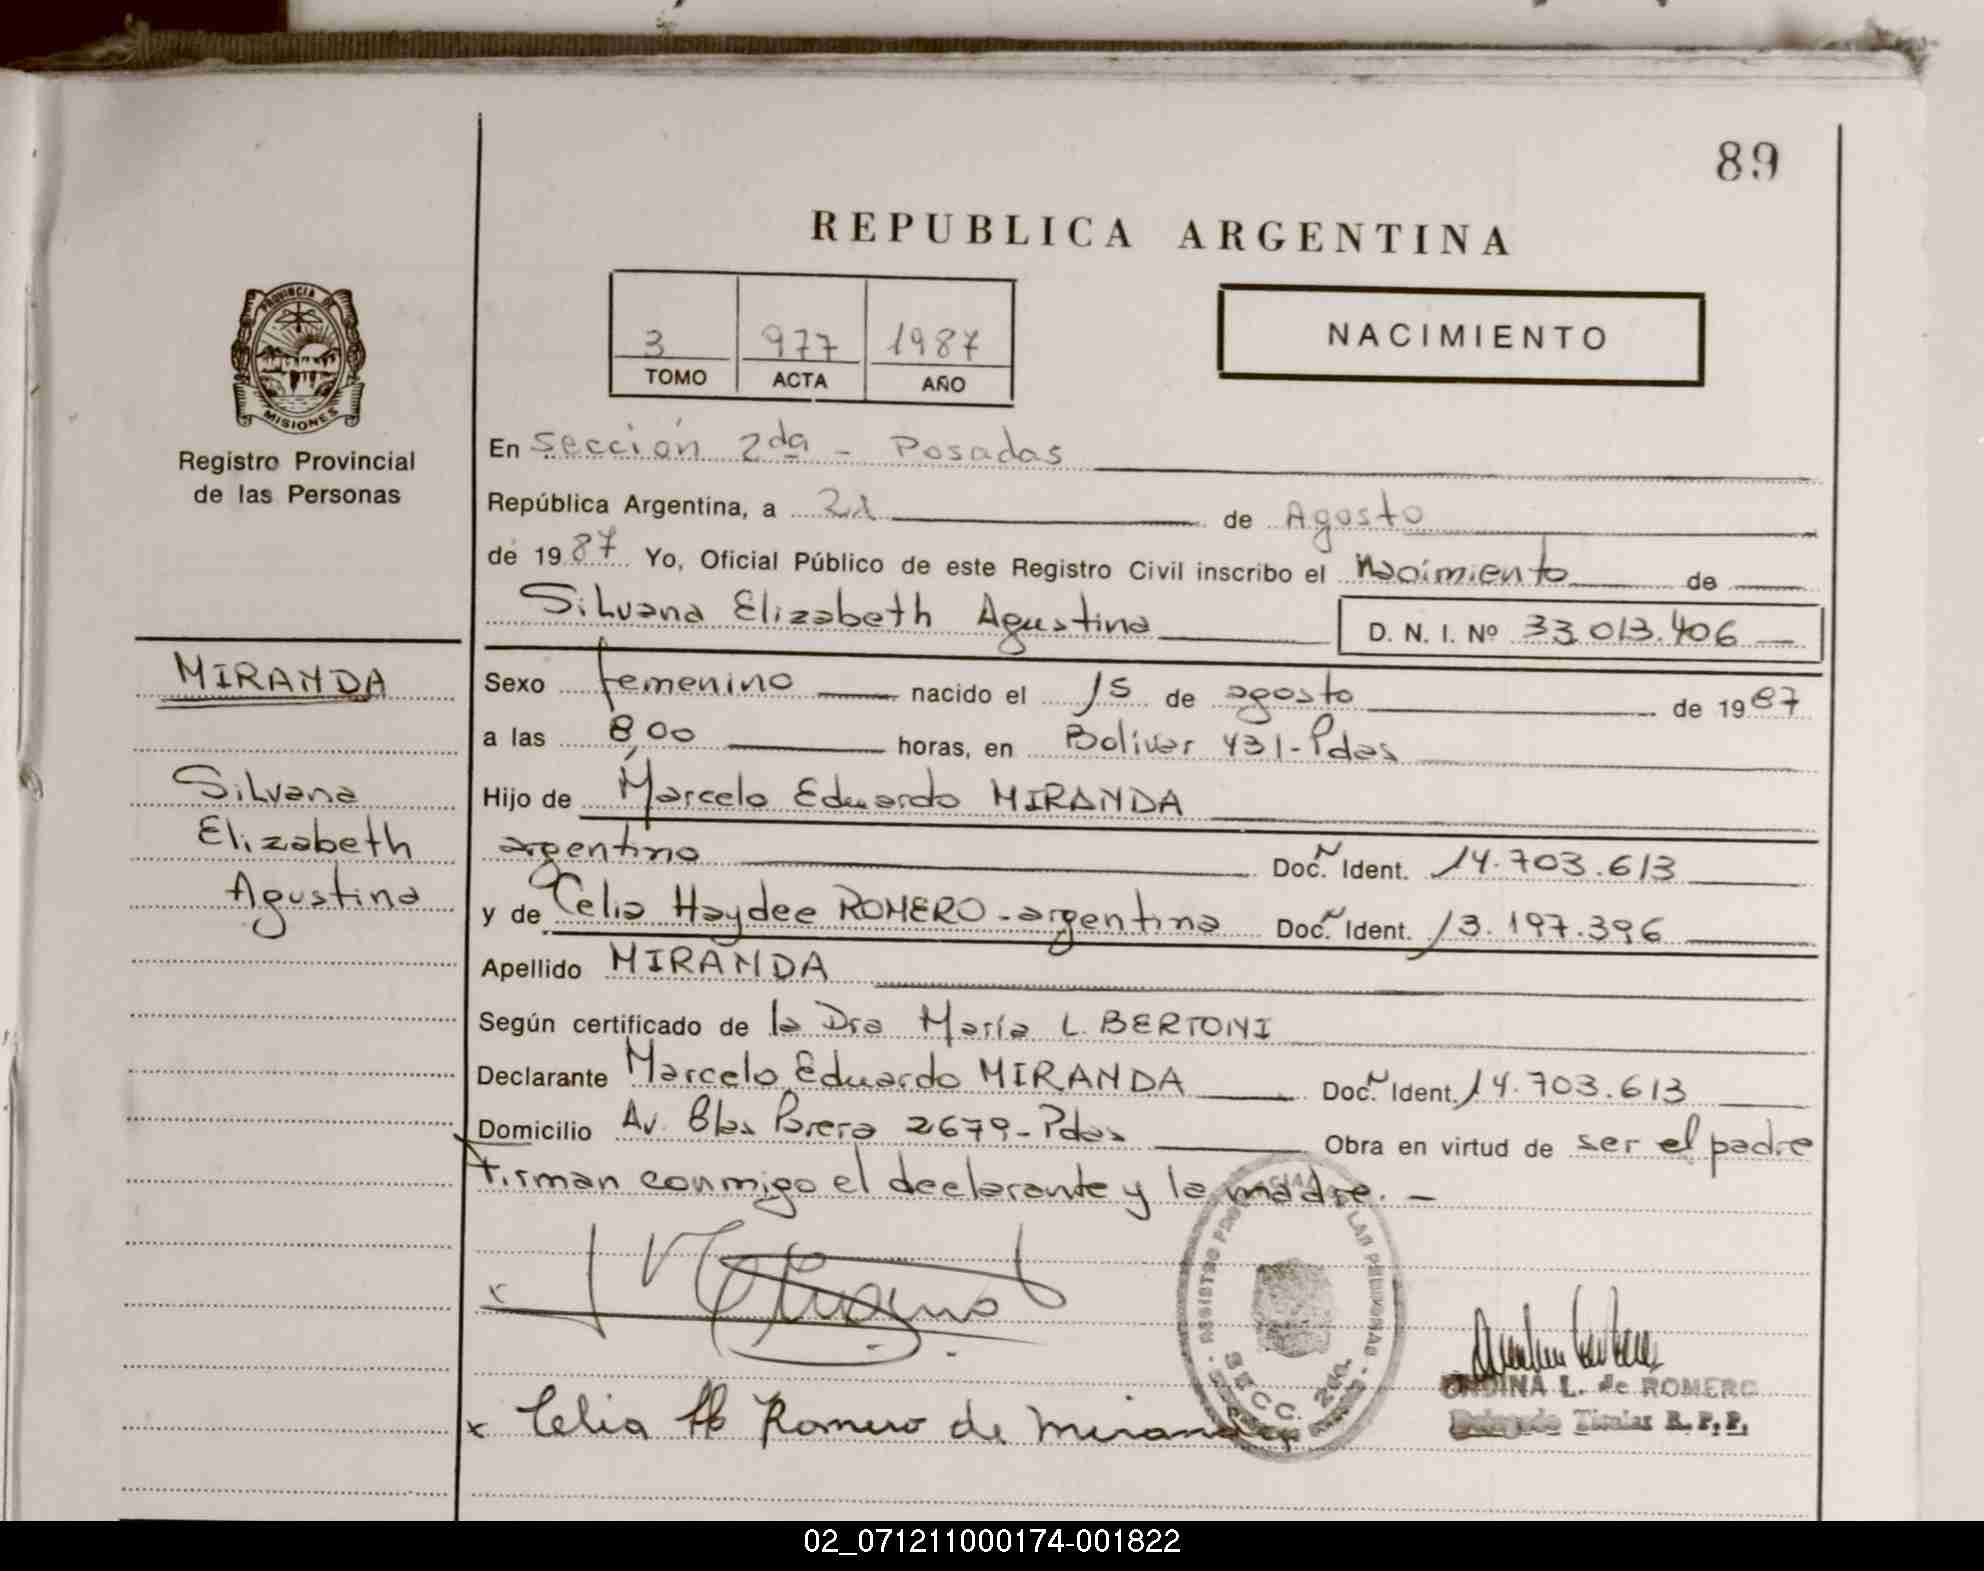 89
REPUBLICA ARGENTINA
3 977 1987
TOMO ACTA AÑO
NACIMIENTO
PROVINCIA DE
MISIONES
Registro Provincial
de las Personas
En Sección 2da - Posadas
República Argentina, a 21 de Agosto
de 1987 Yo, Oficial Público de este Registro Civil inscribo el Nacimiento de
Silvana Elizabeth Agustina D. N. I. Nº 33.013.406
MIRANDA
Silvana
Elizabeth
Agustina
Sexo femenino nacido el 15 de agosto de 1987
a las 8,00 horas, en Bolívar 431-Pdas
Hijo de Marcelo Eduardo MIRANDA
argentino Doc. N Ident. 14.703.613
y de Celia Haydee ROMERO - argentina Doc. N Ident. 13.197.396
Apellido MIRANDA
Según certificado de la Dra María L. BERTONI
Declarante Marcelo Eduardo MIRANDA Doc. N Ident. 14.703.613
Domicilio Av. Blas Brera 2679-Pdas Obra en virtud de ser el padre
firman conmigo el declarante y la madre. -
REGISTRO PROVINCIAL DE LAS PERSONAS
SECC. 2da.
x Celia H Romero de Miranda
L. de ROMERO
Delegado Titular R. P. P.
02_071211000174-001822